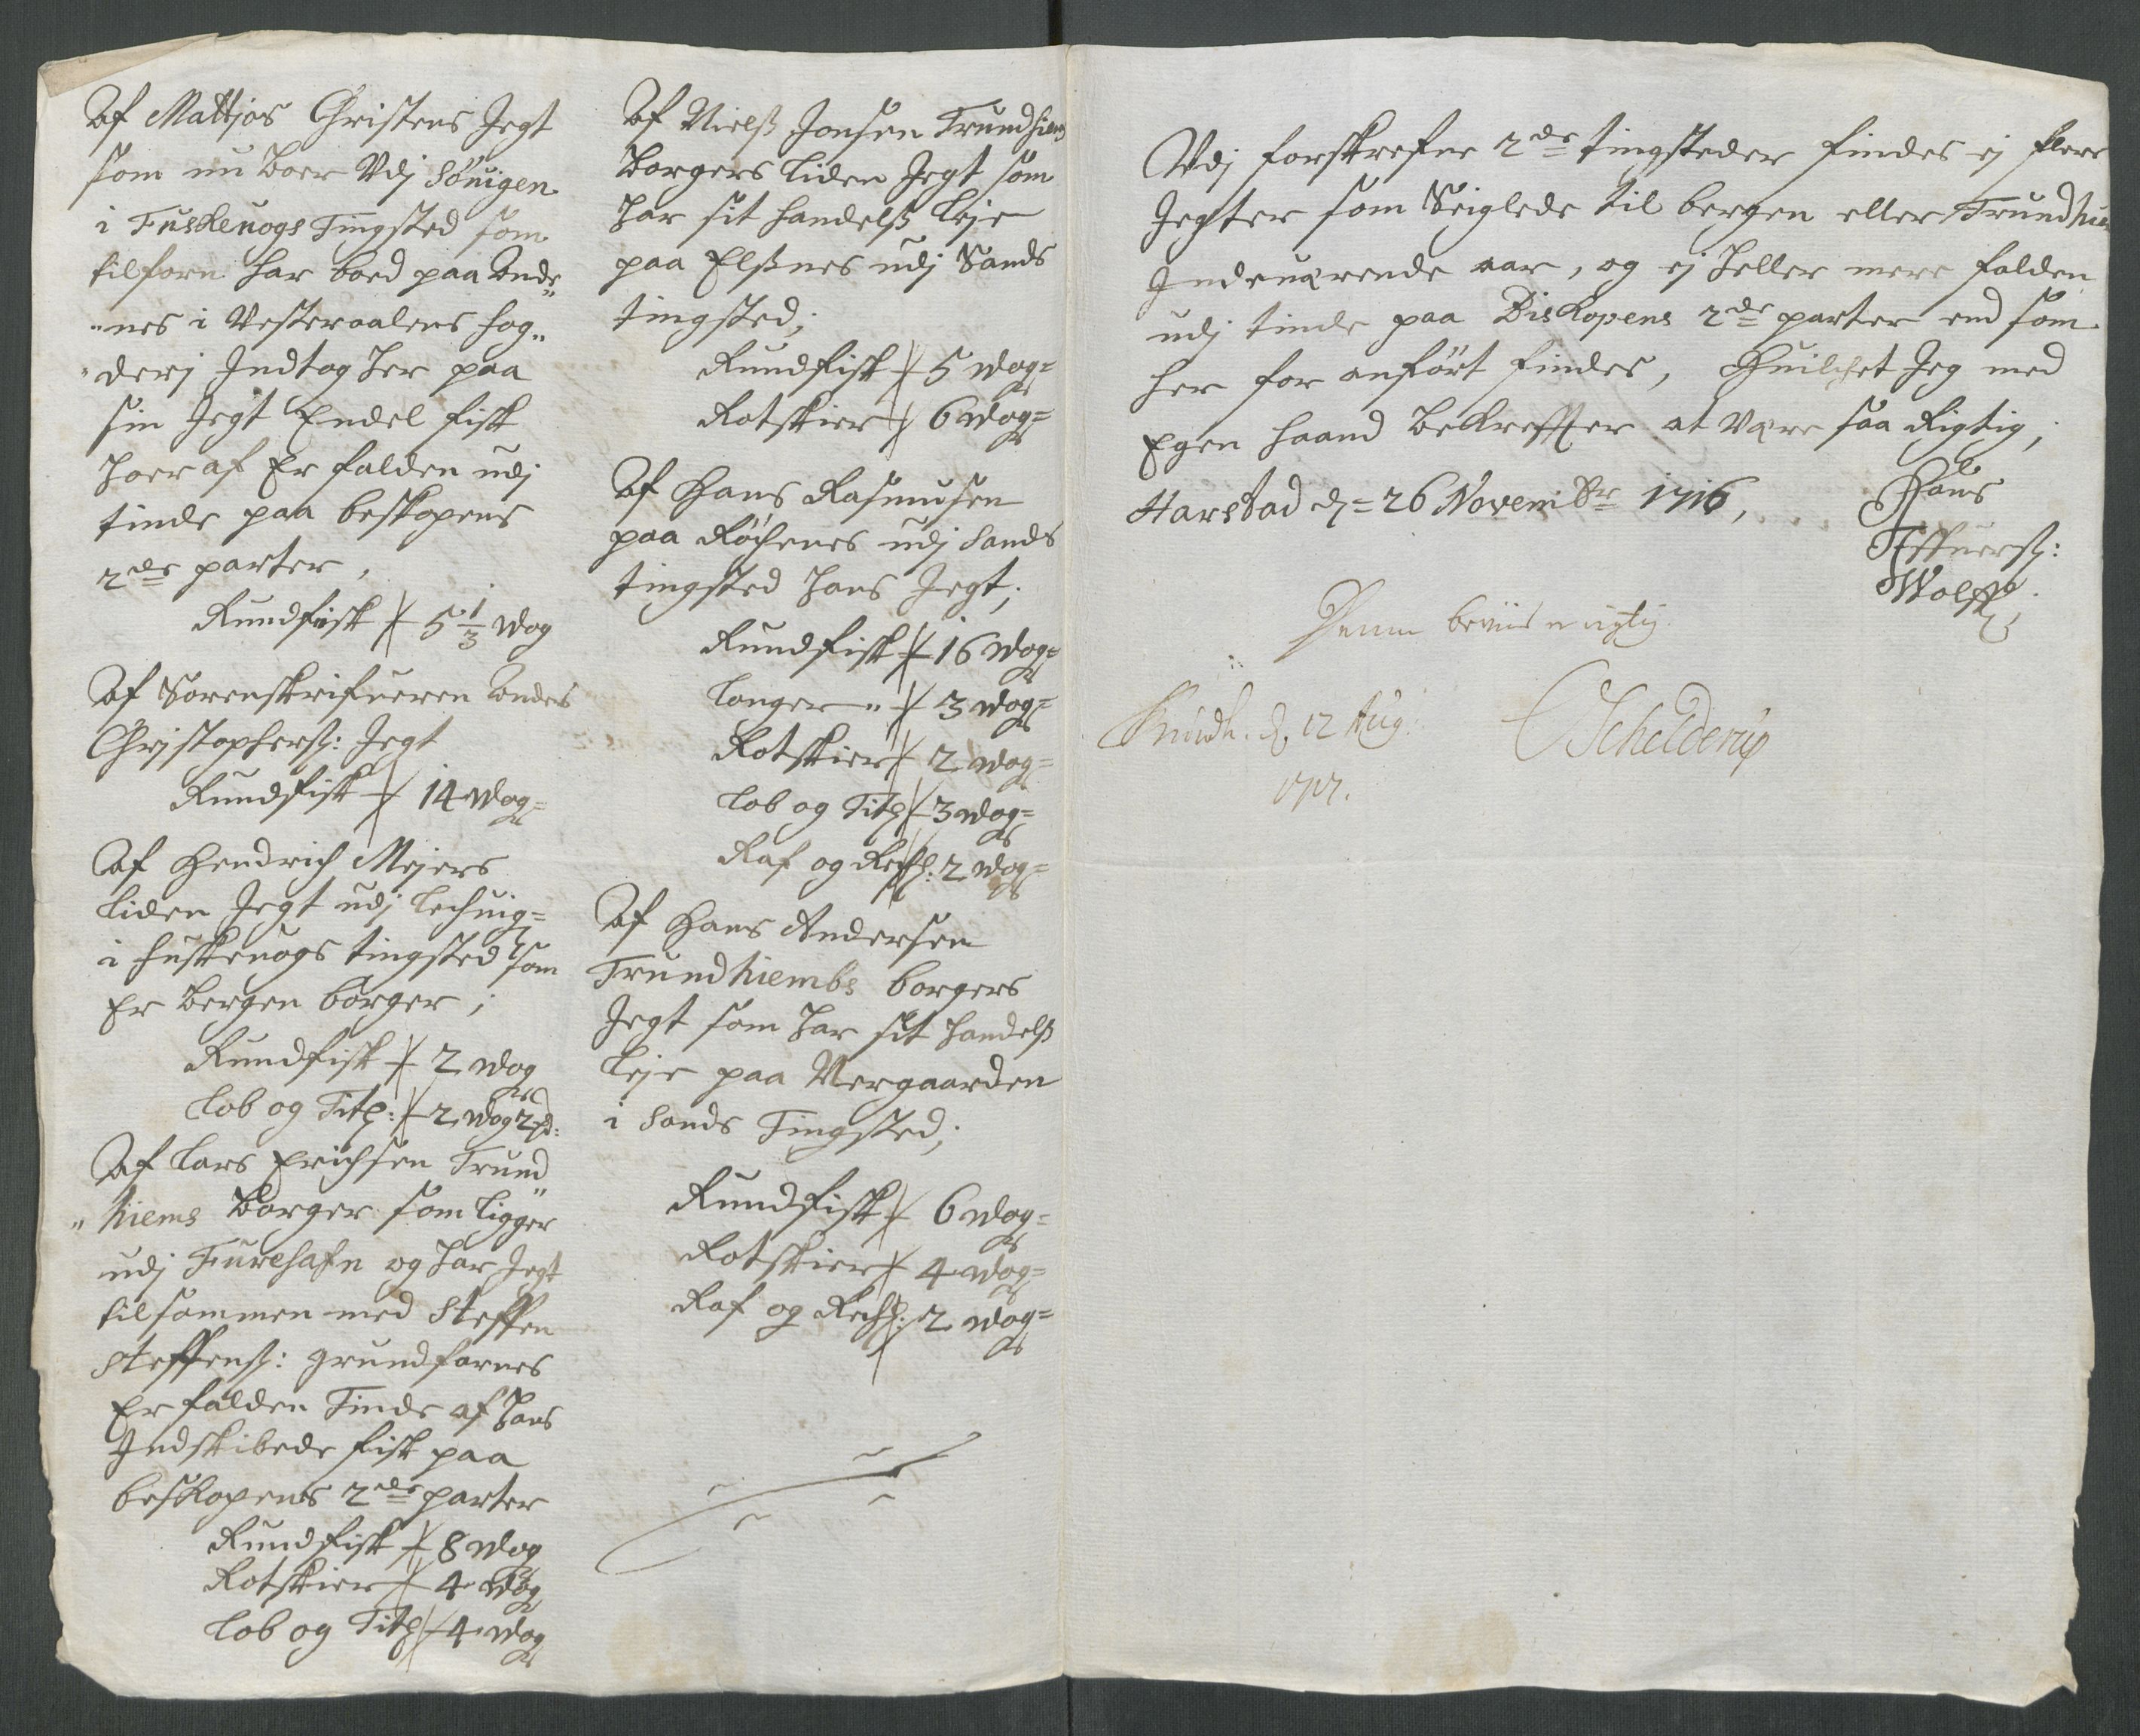 Af Mattjas Christens Jegt
som nu boer Vdj Sönigen
i Fuskeuogs Tingsted som
tilforn har boed paa Ande„
„nes i Vesteraalens fog„
„derj Indtog her paa
sin Jegt Endel fisk
hoer af Er falden udj
tinde paa beskopens
2de parter,
Rundfisk 5 1/3 wog
Af Sorenskrifueren Anders
Christophersß: Jegt
Rundfisk 14 wog=
Af Hendrich Mejers
liden Jegt udj
i fuskeuogs tingsted som
Er Bergen borger;
Rundfisk 2 wog
lob og Titl: 2 wog 2 pd:
Af Lars Erichsen Trund„
„hiems Borger som ligger
udj Furehafn og har Jegt
tilsammen med Steffen
Steffensß: grundfarnes
Er falden Tinde af hans
Indskibede fisk paa
beskopens 2de parter
Rundfisk 8 wog
Rotskier 4 wog
lob og Titl 4 wog
Af Nielß Jonsen Trundhiems
Borgers liden Jegt som
har sit handelß leje
paa Elßnes udj Sands
tingsted;
Rundfisk 5 wog=
Rotskier 6 wog=
Af Hans Rasmusen
paa Röchenes udj Sands
tingsted hans Jegt;
Rundfisk 16 wog=
langer „ 3 wog=
Rotskier 2 wog=
lob og Titl 3 wog=
Raf og Rechl: 2 wog=
Af Hans Andersen
Trundhiembs borgers
Jegt som har sit handelß
leje paa Vergaarden
i Sands Tingsted;
Rundfisk 6 wog=
Rotskier 4 wog=
Raf og Rechl: 2 wog=
Vdj forskrefne 2de tingsteder findes ej flere
Jegter som Seiglede til bergen eller Trundhiem
Indeuærende aar, og ej heller mere falden
udj tinde paa Biskopens 2de parter end som
her for anført findes, Huilchet Jeg med
Egen haand bekreffter at være saa Rigtig;
Harstad d= 26 Novembr 1716,
Hans
Wolff
Denne beviis er rigtig.
d. 12 Aug.
1717.
Schelderup